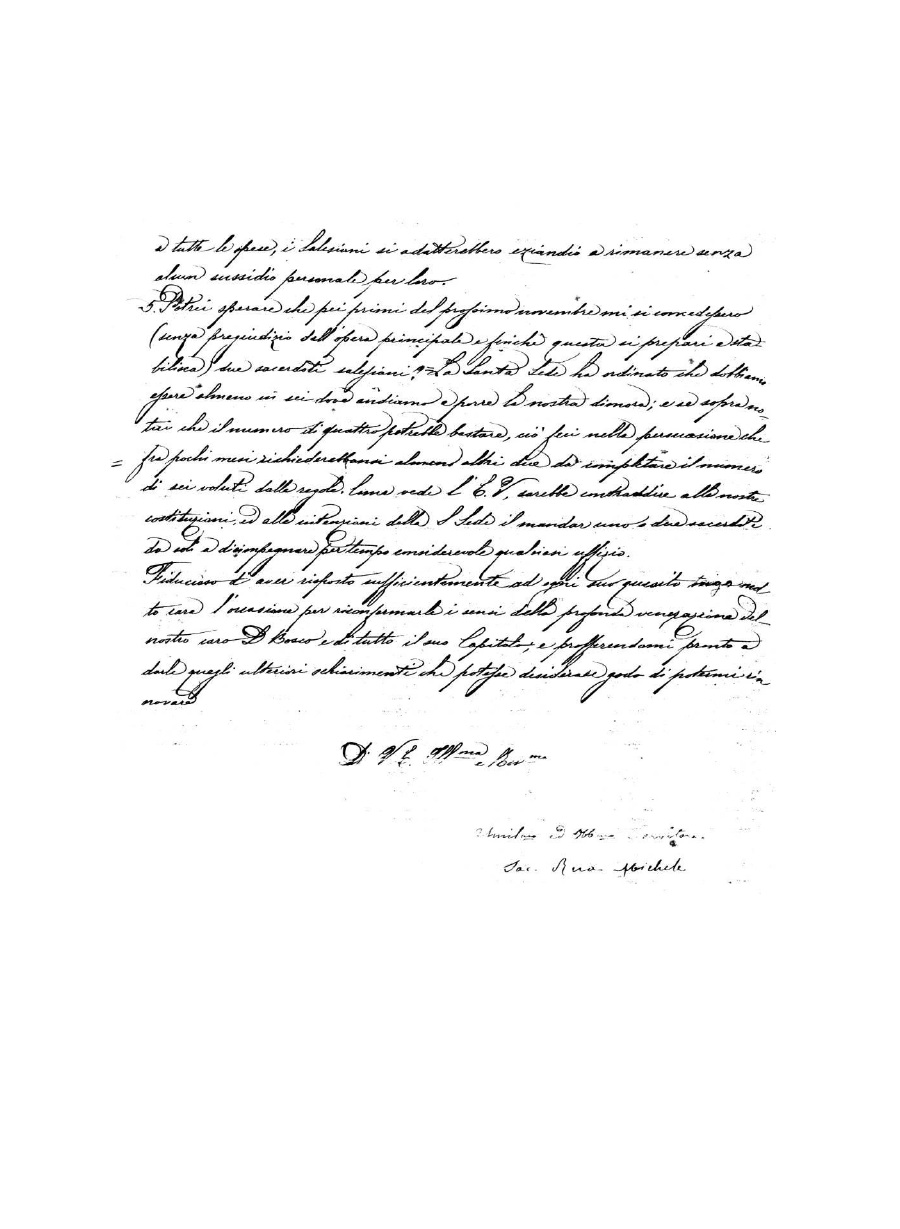 a tutte le spese, i Salesiani si adatterebbero eziandio a rimanere senza
alcun sussidio personale per loro.
5. Potrei sperare che pei primi del prossimo novembre mi si concedessero
(senza pregiudizio dell'opera principale e finché questa si prepari e sta-
bilisca) due sacerdoti salesiani? = La Santa Sede ha ordinato che dobbiamo
essere almeno in sei dove andiamo a porre la nostra dimora; e se sopra no-
tai che il numero di quattro potrebbe bastare, ciò feci nella persuasione che
= fra pochi mesi richiederebbonsi almeno altri due da completare il numero
di sei voluti dalle regole. Come vede l'E. V. sarebbe contraddire alle nostre
costituzioni, ed alle intenzioni della S Sede il mandar uno o due sacerdoti
da soli a disimpegnare per tempo considerevole qualsiasi uffizio.
Fiducioso d'aver risposto sufficientemente ad ogni suo quesito mol-
to cara l'occasione per riconfermarle i sensi della profonda venerazione del
nostro caro D Bosco e di tutto il suo Capitolo, e profferendomi pronto a
darle quegli ulteriori schiarimenti che potesse desiderare godo di potermi rin-
novare
D. V. E. Ill.ma e Rev.ma
Umilmo ed Obb.mo Servitore
Sac. Rua Michele